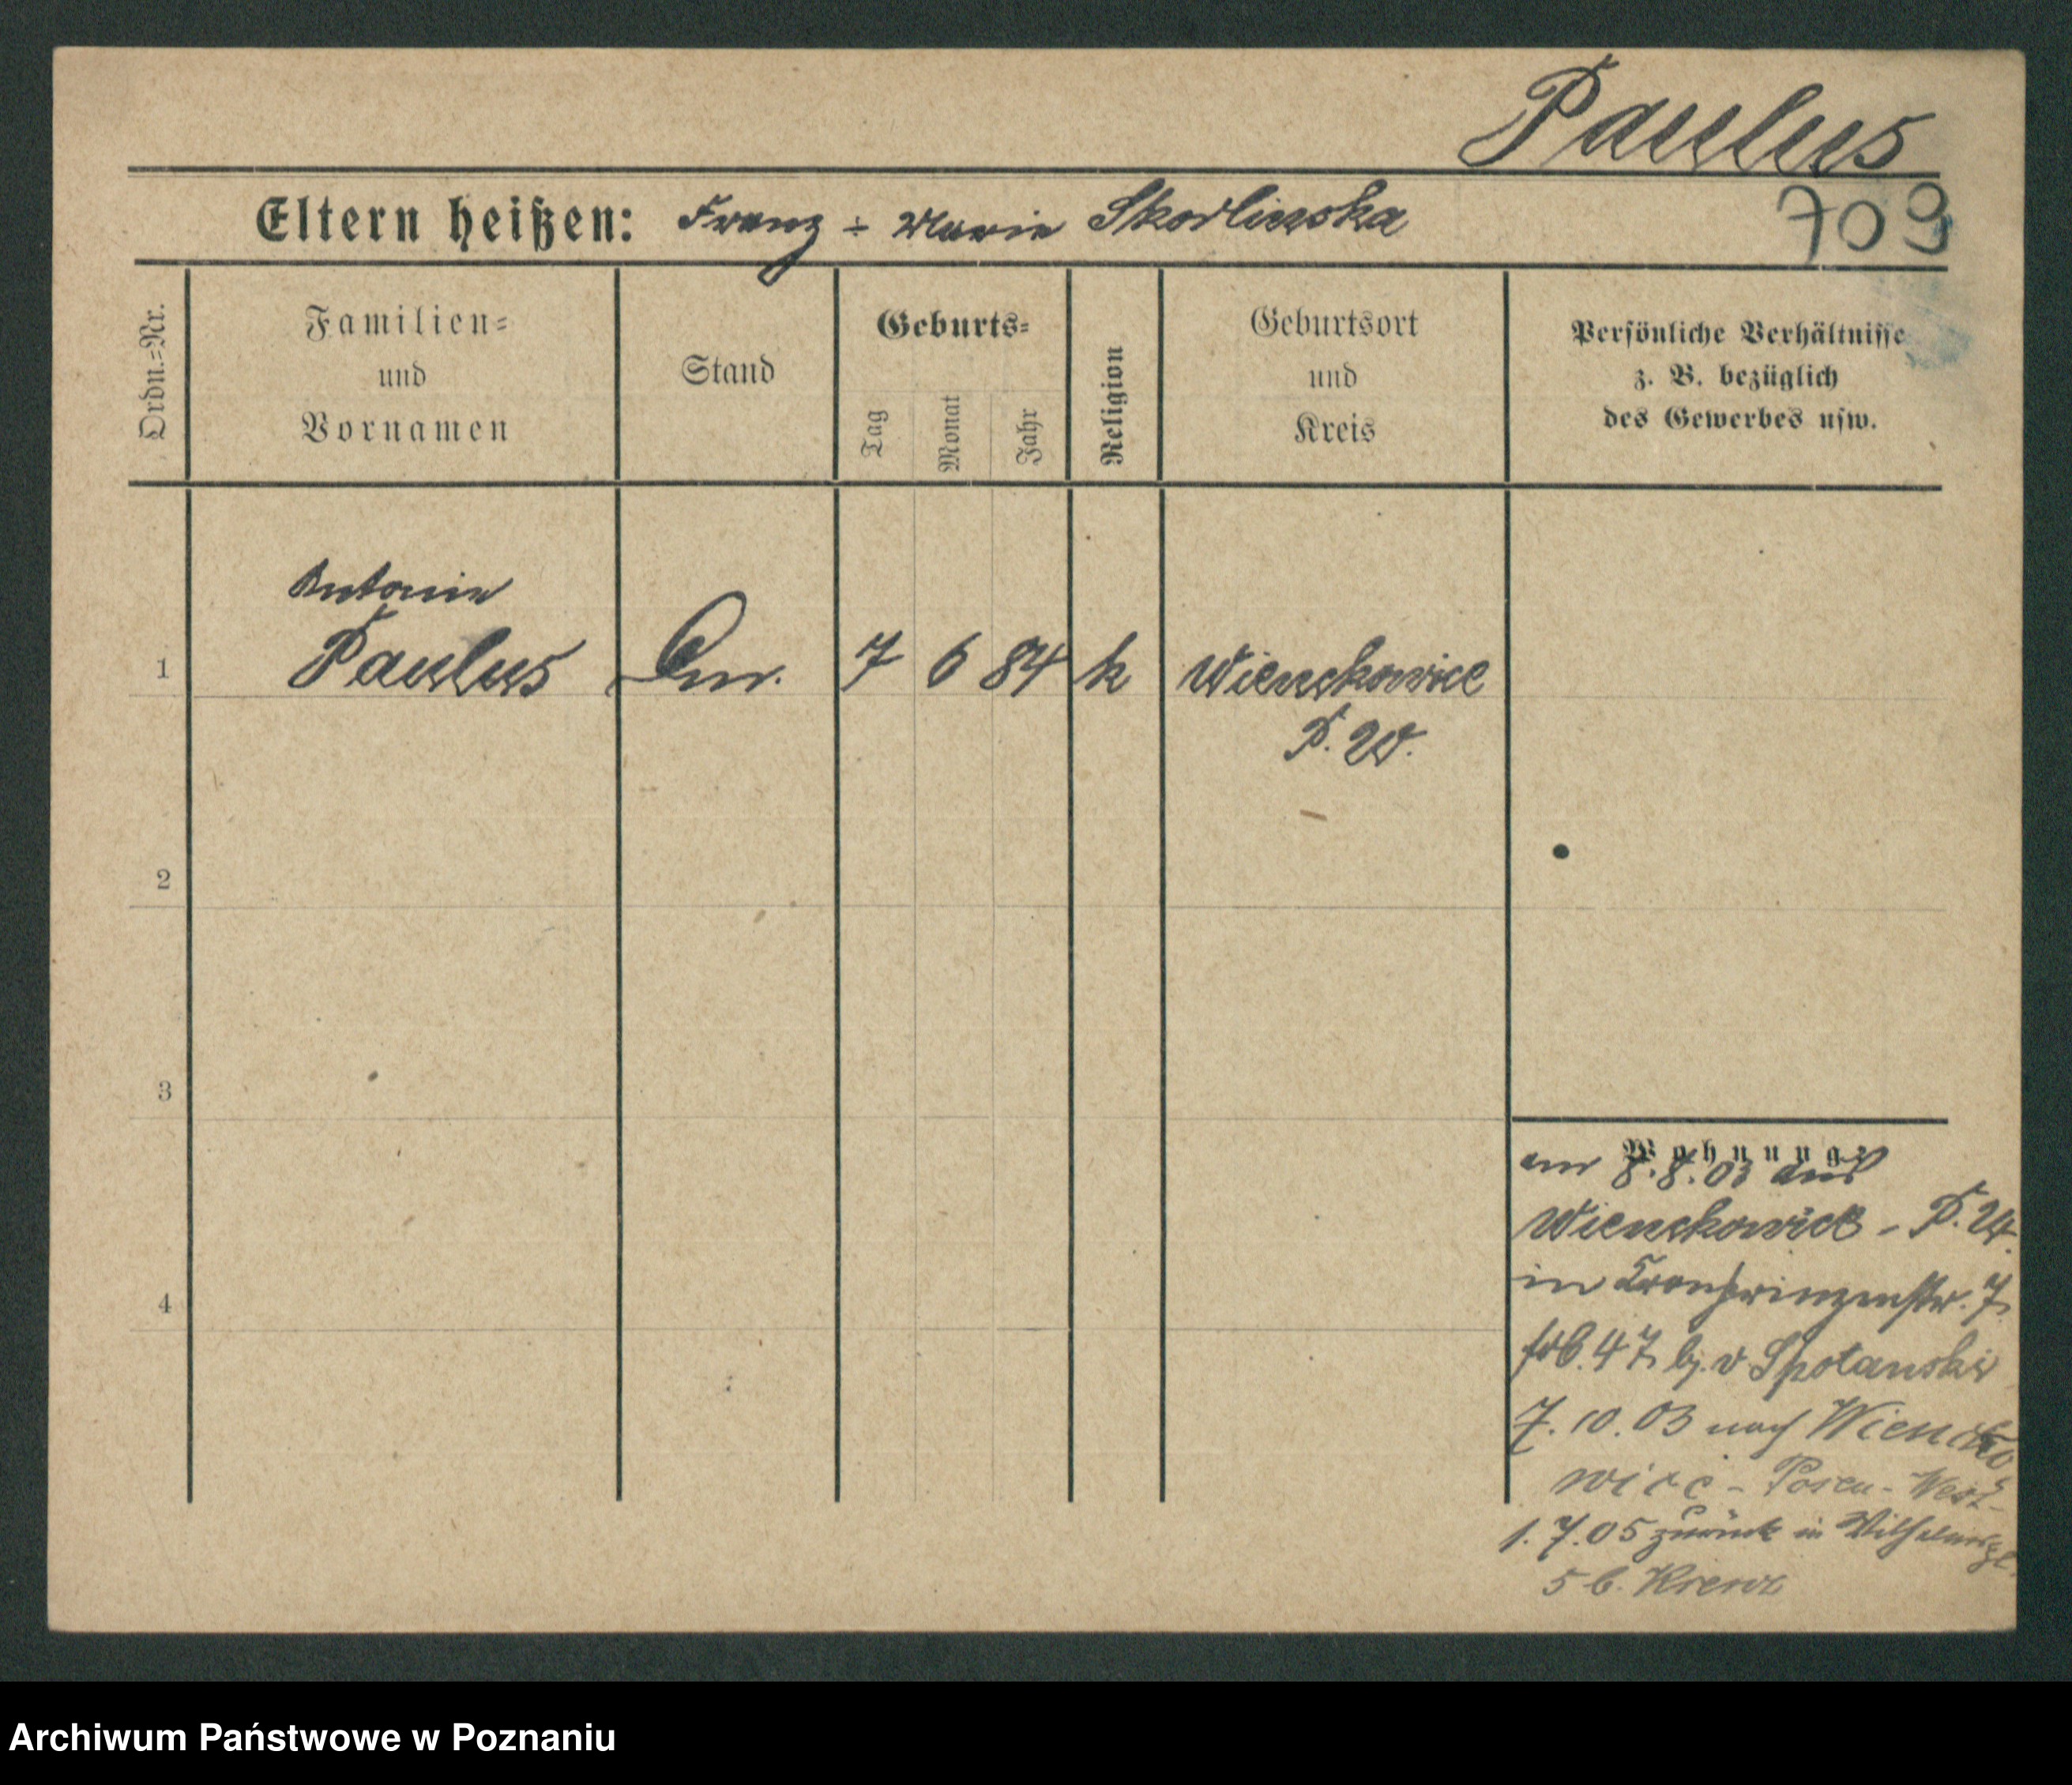 Paulus
Eltern heißen: Franz ÷ Marie Skorlinska
709
Ordn.=Nr.
Familien=
und
Vornamen
Stand
Geburts=
Tag
Monat
Jahr
Religion
Geburtsort
und
Kreis
Persönliche Verhältnisse
z. B. bezüglich
des Gewerbes usw.
Antonie
1 Paulus 7 6 84 k Wienckowice
P. W.
2
3
4
Wohnung:
am 8.8.03 aus
Wienckowice - P. W.
in Kronprinzenstr. 7
47 b. v
7. 10. 03 nach Wiencko
wice - Posen - West-
1. 7. 05 zurück in Wilhelmspl.
5 b.
Archiwum Państwowe w Poznaniu